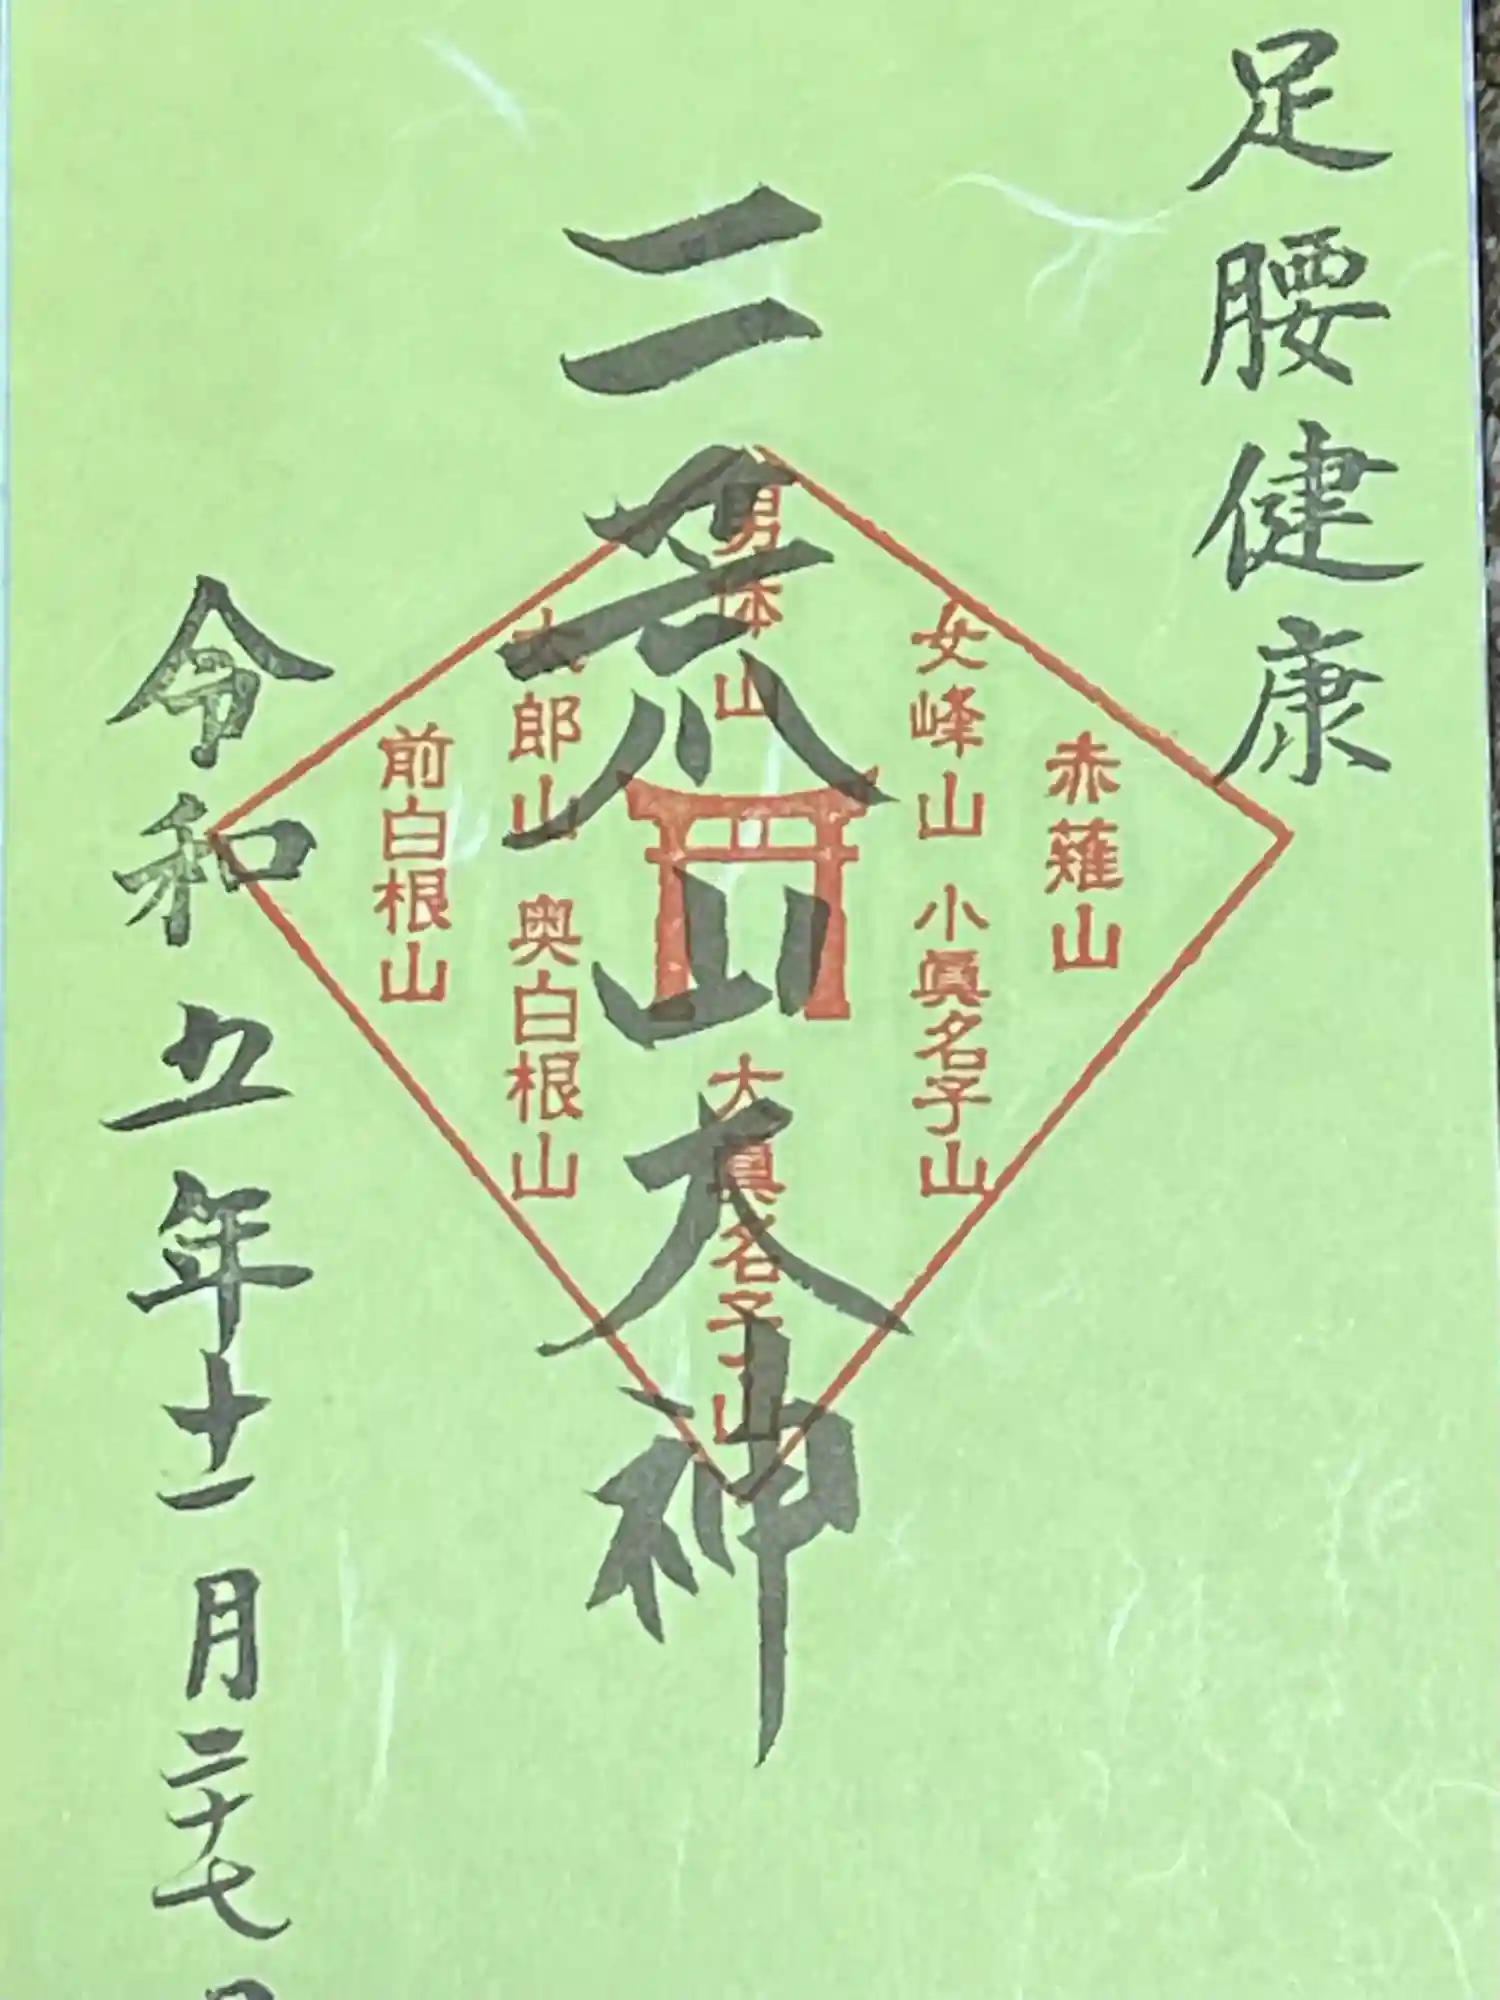 足腰健康
二荒山大神
赤薙山
女峰山
小眞名子山
男体山
大眞名子山
太郎山
奥白根山
前白根山
令和五年十一月二十七日